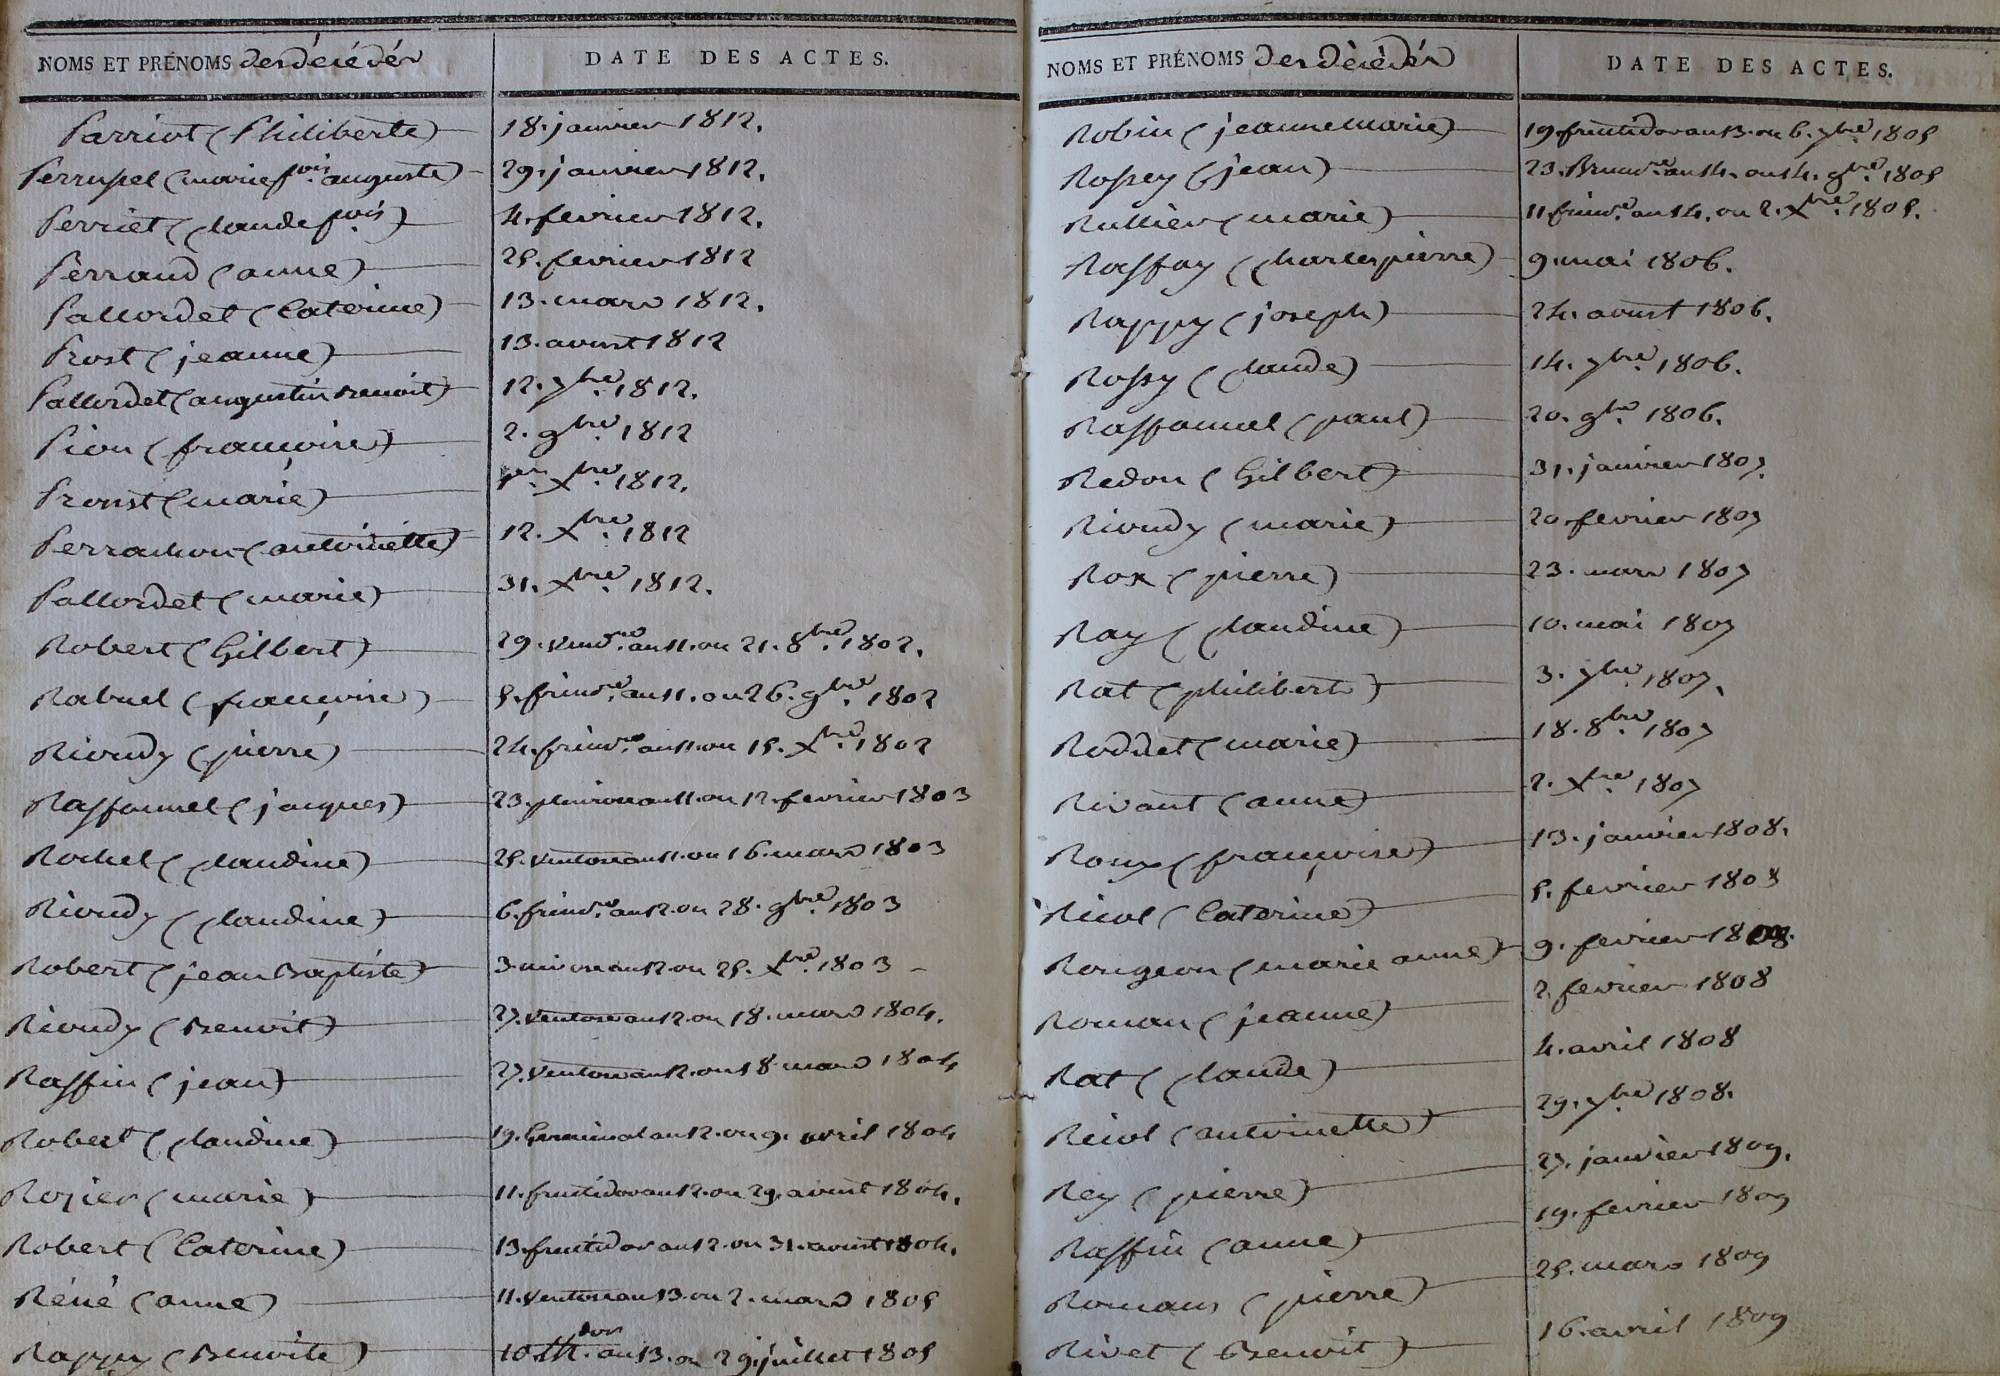 NOMS ET PRÉNOMS des décédés DATE DES ACTES.
Parriot (Philiberte) 18. janvier 1812.
Perrupel (marie fois auguste) 29. janvier 1812.
Perriet (claude fois) 4. fevrier 1812.
Perraud (anne) 25. fevrier 1812
Pallordet (Caterine) 13. mars 1812.
Prost (jeanne) 13. aoust 1812
Pallordet (augustin Benoit) 12. 7bre. 1812.
Pion (françoise) 2. 9bre. 1812
Proust (marie) 1er. Xbre. 1812.
Perrachon (antoinette) 12. Xbre. 1812
Pallordet (marie) 31. Xbre. 1812.
Robert (Gilbert) 29. vendre. an 11. ou 21. 8bre. 1802.
Rabuel (françoise) 5. frimre. an 11. ou 26. 9bre. 1802
Rioudy (pierre) 24. frimre. an 11. ou 15. Xbre. 1802
Raffournel (jacques) 23. pluviose an 11. ou 12. fevrier 1803
Rochel (claudine) 25. ventose an 11. ou 16. mars 1803
Rioudy (claudine) 6. frimre. an 12. ou 28. 9bre. 1803
Robert (jean Baptiste) 3. nivose an 12. ou 25. Xbre. 1803
Rioudy (Benoit) 27. ventose an 12. ou 18. mars 1804.
Raffin (jean) 27. ventose an 12. ou 18. mars 1804
Robert (claudine) 19. Germinal an 12. ou 9. avril 1804
Rozier (marie) 11. fructidor an 12. ou 29. aoust 1804.
Robert (Caterine) 13. fructidor an 12. ou 31. aoust 1804.
Réné (anne) 11. ventose an 13. ou 2. mars 1805
Rappy (Benoite) 10. th.dor an 13. ou 29. juillet 1805
NOMS ET PRÉNOMS des décédés DATE DES ACTES.
Robin (jeanne marie) 19. fructidor an 13. ou 6. 7bre. 1805
Rossey (jean) 23. Brumre. an 14. ou 14. 9bre. 1805
Rullier (marie) 11. frimre. an 14. ou 2. Xbre. 1805.
Raffay (charles pierre) 9. mai 1806.
Rappy (joseph) 24. aoust 1806.
Rossy (claude) 14. 7bre. 1806.
Raffournel (paul) 20. 9bre. 1806.
Redon (Gilbert) 31. janvier 1807.
Rioudy (marie) 20. fevrier 1807
Rox (pierre) 23. mars 1807
Ray (claudine) 10. mai 1807
Rat (philibert) 3. 7bre. 1807.
Roddet (marie) 18. 8bre. 1807
Rivant (anne) 2. Xbre. 1807
Roux (françoise) 13. janvier 1808.
Ricol (Caterine) 5. fevrier 1808
Rougeon (marie anne) 9. fevrier 1808.
Roman (jeanne) 2. fevrier 1808
Rat (claude) 4. avril 1808
Ricol (antoinette) 29. 7bre 1808.
Rey (pierre) 27. janvier 1809.
Raffin (anne) 19. fevrier 1809
Romans (pierre) 25. mars 1809
Rivet (Benoit) 16. avril 1809